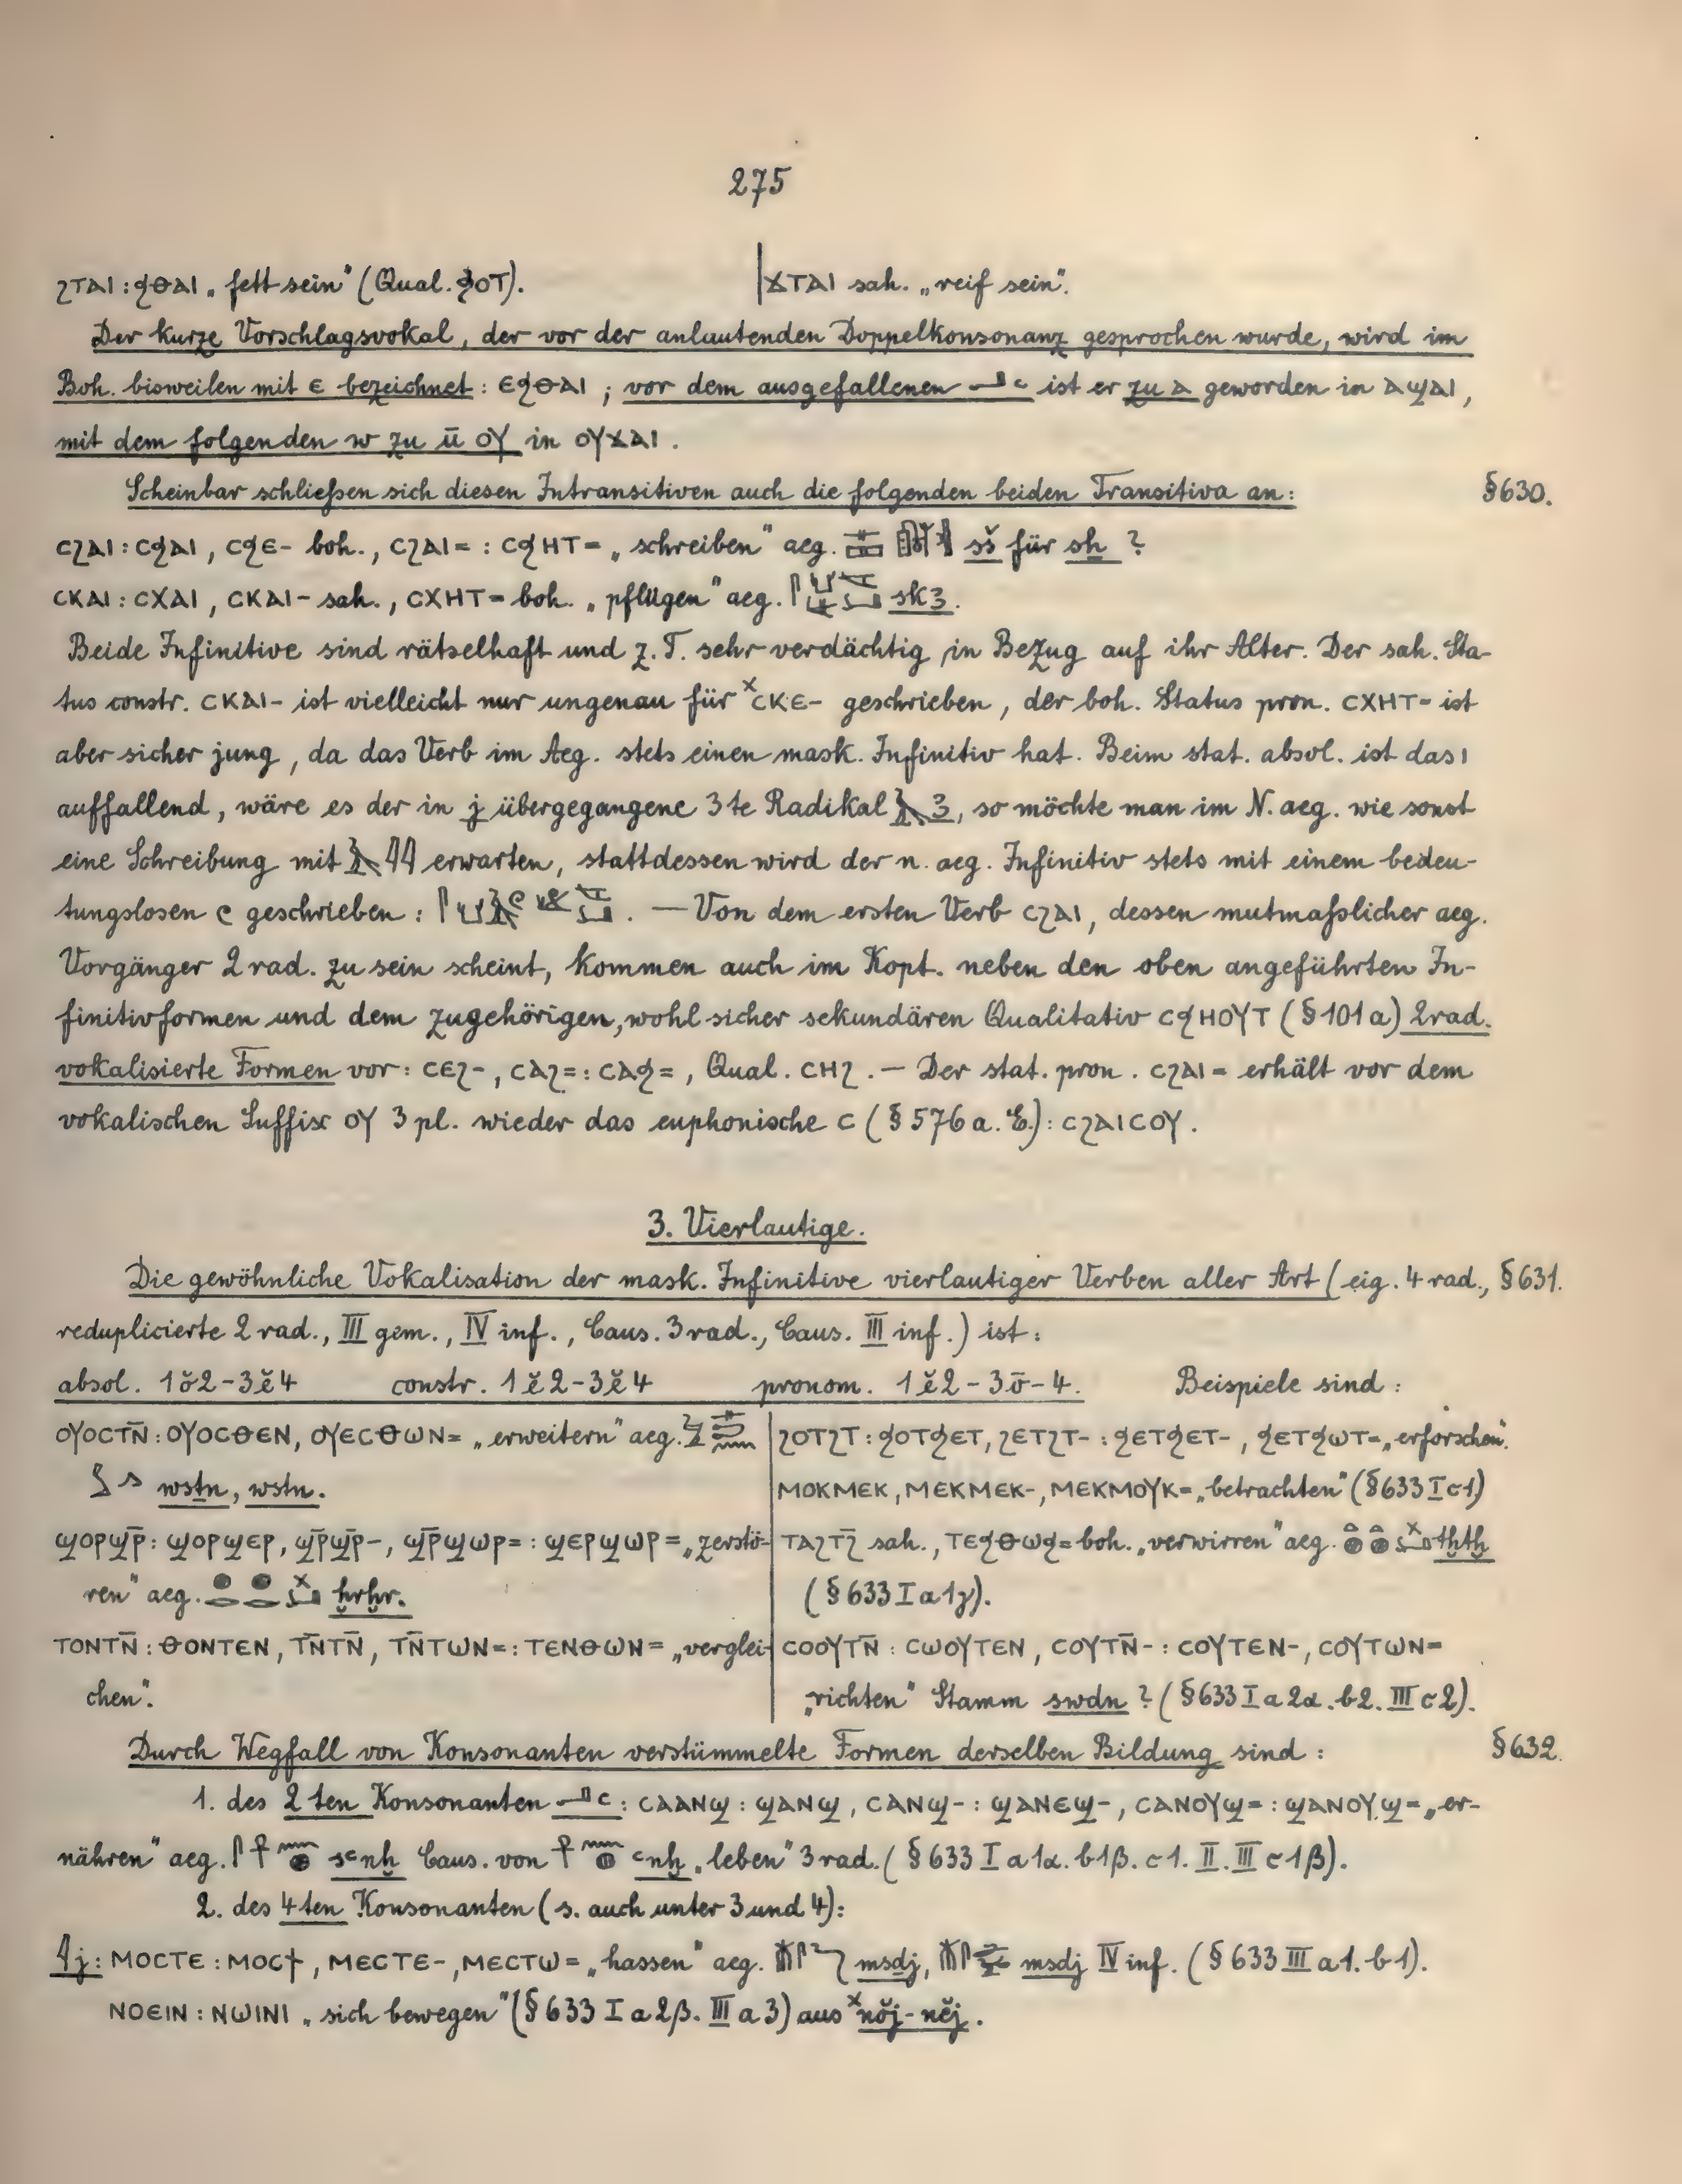 275
ϩⲧⲁⲓ : ϧⲑⲁⲓ „fett sein" (Qual. ϧⲟⲧ).
ϫⲧⲁⲓ sah. „reif sein".
Der kurze Vorschlagsvokal, der vor der anlautenden Doppelkonsonanz gesprochen wurde, wird im
Boh. bisweilen mit ⲉ bezeichnet: ⲉϧⲑⲁⲓ ; vor dem ausgefallenen 𓂝 ꜥ ist er zu ⲁ geworden in ⲁϣⲁⲓ,
mit dem folgenden w zu ū ⲟⲩ in ⲟⲩϫⲁⲓ.
Scheinbar schließen sich diesen Intransitiven auch die folgenden beiden Transitiva an: §630.
ⲥϩⲁⲓ : ⲥϧⲁⲓ, ⲥϧⲉ- boh., ⲥϩⲁⲓ= : ⲥϧⲏⲧ= „schreiben" aeg. sš für sẖ ?
ⲥⲕⲁⲓ : ⲥⲭⲁⲓ, ⲥⲕⲁⲓ- sah., ⲥⲭⲏⲧ= boh. „pflügen" aeg. skꜣ.
Beide Infinitive sind rätselhaft und z. T. sehr verdächtig in Bezug auf ihr Alter. Der sah. Sta-
tus constr. ⲥⲕⲁⲓ- ist vielleicht nur ungenau für ˣⲥⲕⲉ- geschrieben, der boh. Status pron. ⲥⲭⲏⲧ= ist
aber sicher jung, da das Verb im Aeg. stets einen mask. Infinitiv hat. Beim stat. absol. ist das ⲓ
auffallend, wäre es der in j übergegangene 3te Radikal 𓄿 ꜣ, so möchte man im N. aeg. wie sonst
eine Schreibung mit 𓄿𓇌 erwarten, stattdessen wird der n. aeg. Infinitiv stets mit einem bedeu-
tungslosen 𓏲 geschrieben : . — Von dem ersten Verb ⲥϩⲁⲓ, dessen mutmaßlicher aeg.
Vorgänger 2 rad. zu sein scheint, kommen auch im Kopt. neben den oben angeführten In-
finitivformen und dem zugehörigen, wohl sicher sekundären Qualitativ ⲥϧⲏⲟⲩⲧ (§101a) 2rad.
vokalisierte Formen vor: ⲥⲉϩ-, ⲥⲁϩ= : ⲥⲁϧ=, Qual. ⲥⲏϩ. — Der stat. pron. ⲥϩⲁⲓ= erhält vor dem
vokalischen Suffix ⲟⲩ 3 pl. wieder das euphonische ⲥ (§576 a. E.): ⲥϩⲁⲓⲥⲟⲩ.
3. Vierlautige.
Die gewöhnliche Vokalisation der mask. Infinitive vierlautiger Verben aller Art (eig. 4 rad., §631.
reduplicierte 2 rad., III gem., IV inf., Caus. 3 rad., Caus. III inf.) ist:
absol. 1ŏ2-3ĕ4 constr. 1ĕ2-3ĕ4 pronom. 1ĕ2-3ō-4. Beispiele sind:
ⲟⲩⲟⲥⲧⲛ̄ : ⲟⲩⲟⲥⲑⲉⲛ, ⲟⲩⲉⲥⲑⲱⲛ= „erweitern" aeg.
wsṯn, wstn.
ϣⲟⲣϣⲣ̄ : ϣⲟⲣϣⲉⲣ, ϣⲣ̄ϣⲣ̄-, ϣⲣ̄ϣⲱⲣ= : ϣⲉⲣϣⲱⲣ= „zerstö-
ren" aeg. ḫrḫr.
ⲧⲟⲛⲧⲛ̄ : ⲑⲟⲛⲧⲉⲛ, ⲧⲛ̄ⲧⲛ̄, ⲧⲛ̄ⲧⲱⲛ= : ⲧⲉⲛⲑⲱⲛ= „verglei-
chen".
ϩⲟⲧϩⲧ : ϧⲟⲧϧⲉⲧ, ϩⲉⲧϩⲧ- : ϧⲉⲧϧⲉⲧ-, ϧⲉⲧϧⲱⲧ= „erforschen".
ⲙⲟⲕⲙⲉⲕ, ⲙⲉⲕⲙⲉⲕ-, ⲙⲉⲕⲙⲟⲩⲕ= „betrachten" (§633 I c 1)
ⲧⲁϩⲧϩ̄ sah., ⲧⲉϧⲑⲱϧ= boh. „verwirren" aeg. tḫtḫ
(§633 I a 1γ).
ⲥⲟⲟⲩⲧⲛ̄ : ⲥⲱⲟⲩⲧⲉⲛ, ⲥⲟⲩⲧⲛ̄- : ⲥⲟⲩⲧⲉⲛ-, ⲥⲟⲩⲧⲱⲛ=
„richten" Stamm swdn ? (§633 I a 2α. b 2. III c 2).
Durch Wegfall von Konsonanten verstümmelte Formen derselben Bildung sind : §632.
1. des 2ten Konsonanten 𓂝 ꜥ : ⲥⲁⲁⲛϣ : ϣⲁⲛϣ, ⲥⲁⲛϣ- : ϣⲁⲛⲉϣ-, ⲥⲁⲛⲟⲩϣ= : ϣⲁⲛⲟⲩϣ= „er-
nähren" aeg. 𓋴𓋹𓈖𓐍 sꜥnḫ Caus. von 𓋹𓈖𓐍 ꜥnḫ „leben" 3 rad. (§633 I a 1α. b 1β. c 1. II. III c 1β).
2. des 4ten Konsonanten (s. auch unter 3 und 4):
𓇋 j: ⲙⲟⲥⲧⲉ : ⲙⲟⲥϯ, ⲙⲉⲥⲧⲉ-, ⲙⲉⲥⲧⲱ= „hassen" aeg. msḏj, msdj IV inf. (§633 III a 1. b 1).
ⲛⲟⲉⲓⲛ : ⲛⲱⲓⲛⲓ „sich bewegen" (§633 I a 2β. III a 3) aus ˣnŏj-nĕj.